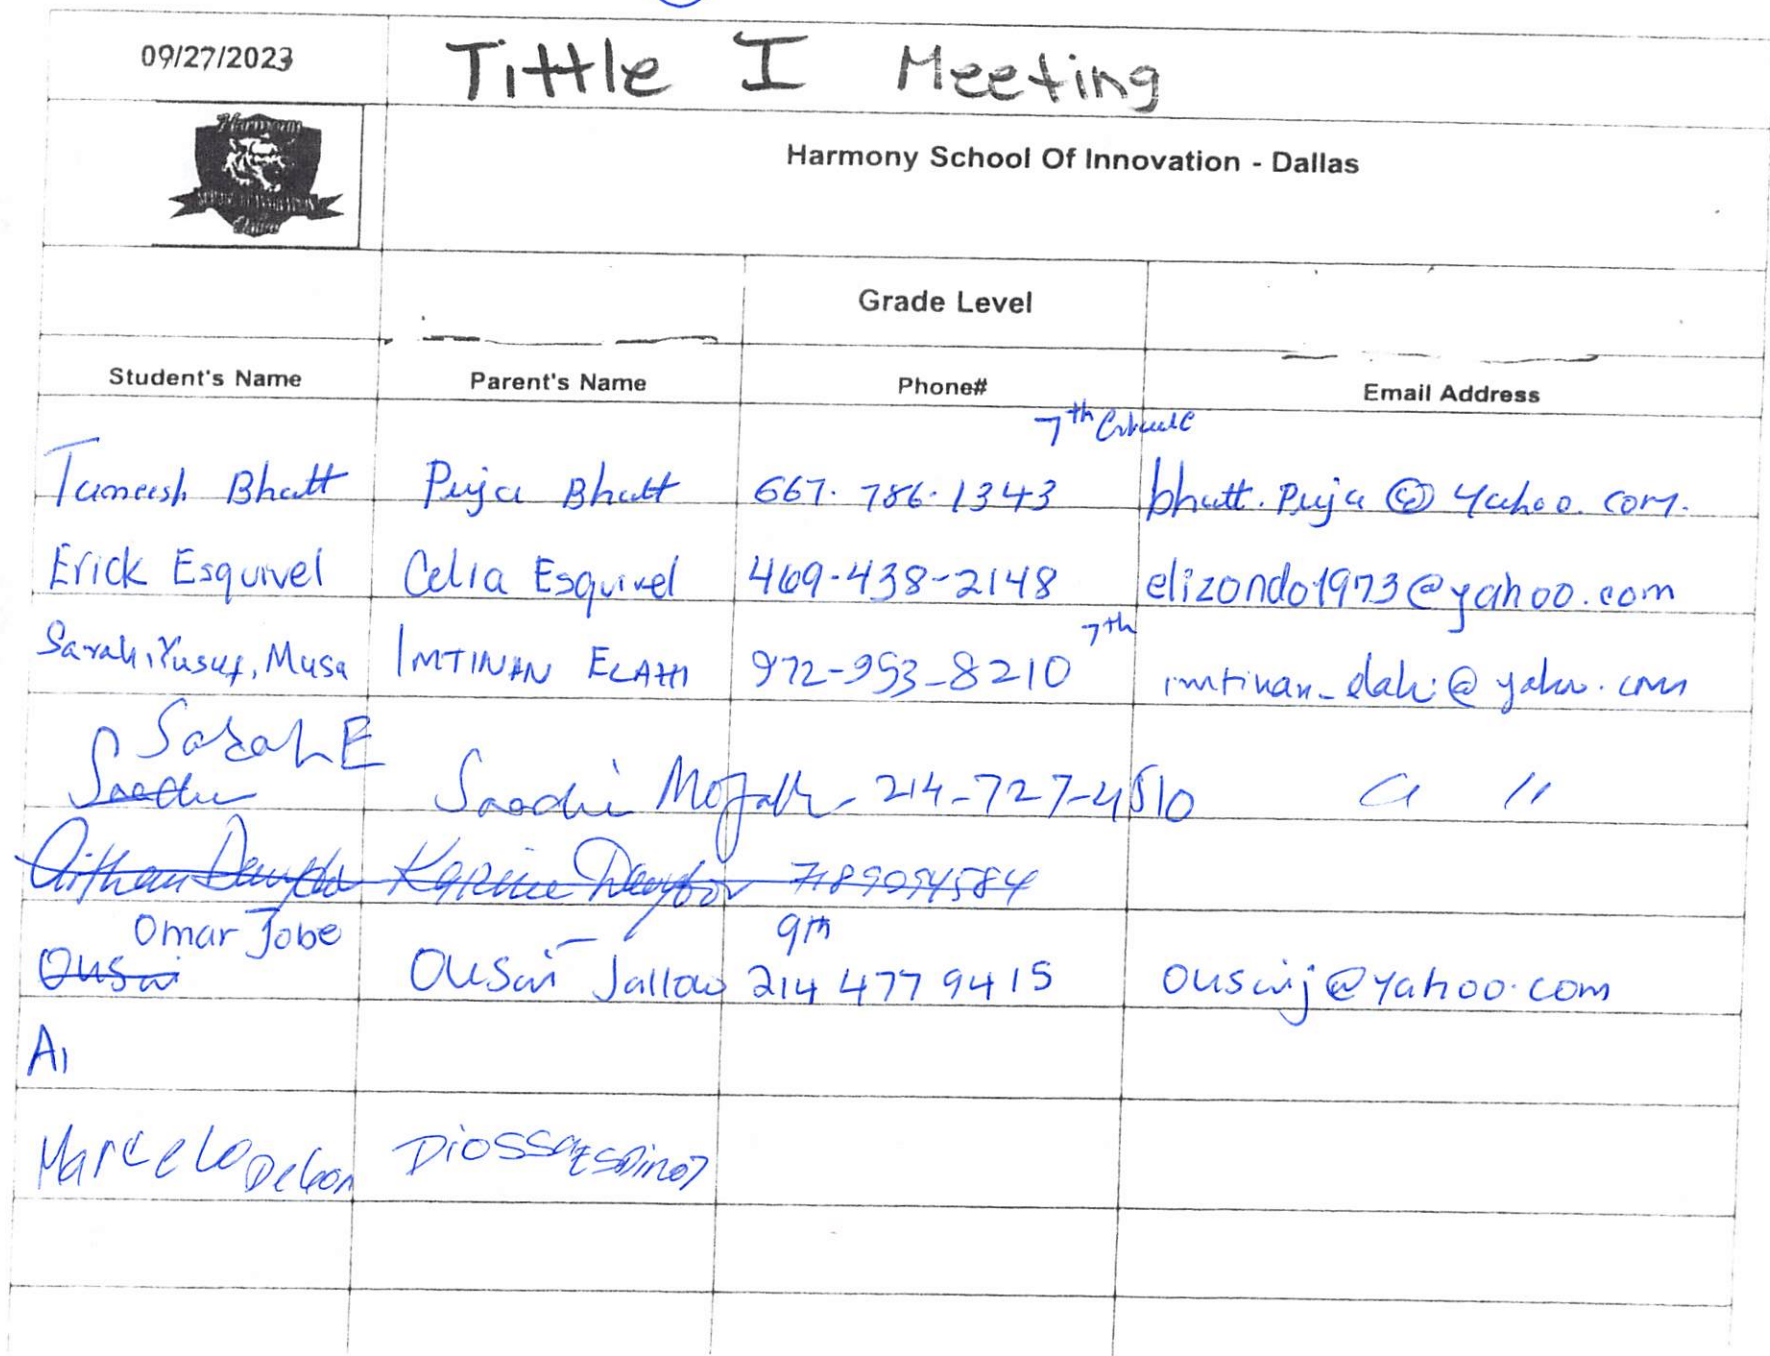 09/27/2023 Tittle I Meeting
Harmony
Harmony School Of Innovation - Dallas
Grade Level
Student's Name Parent's Name Phone# Email Address
7th
Taneesh Bhatt Puja Bhatt 667. 786. 1343 bhatt.Puja@Yahoo.com.
Erick Esquivel Celia Esquivel 469-438-2148 elizondo1973@yahoo.com
7th
Sarah, Yusuf, Musa IMTINAN ELAHI 972-953-8210 imtinan_elahi@yahoo.com
Sarah E
Saadia Saadia 214-727-4510 " "
7189094584
Omar Jobe 9th
Ousai Ousai Jallow 214 477 9415 ousaij@yahoo.com
Ai
Marcelo DeLeon Diossa Espinoz